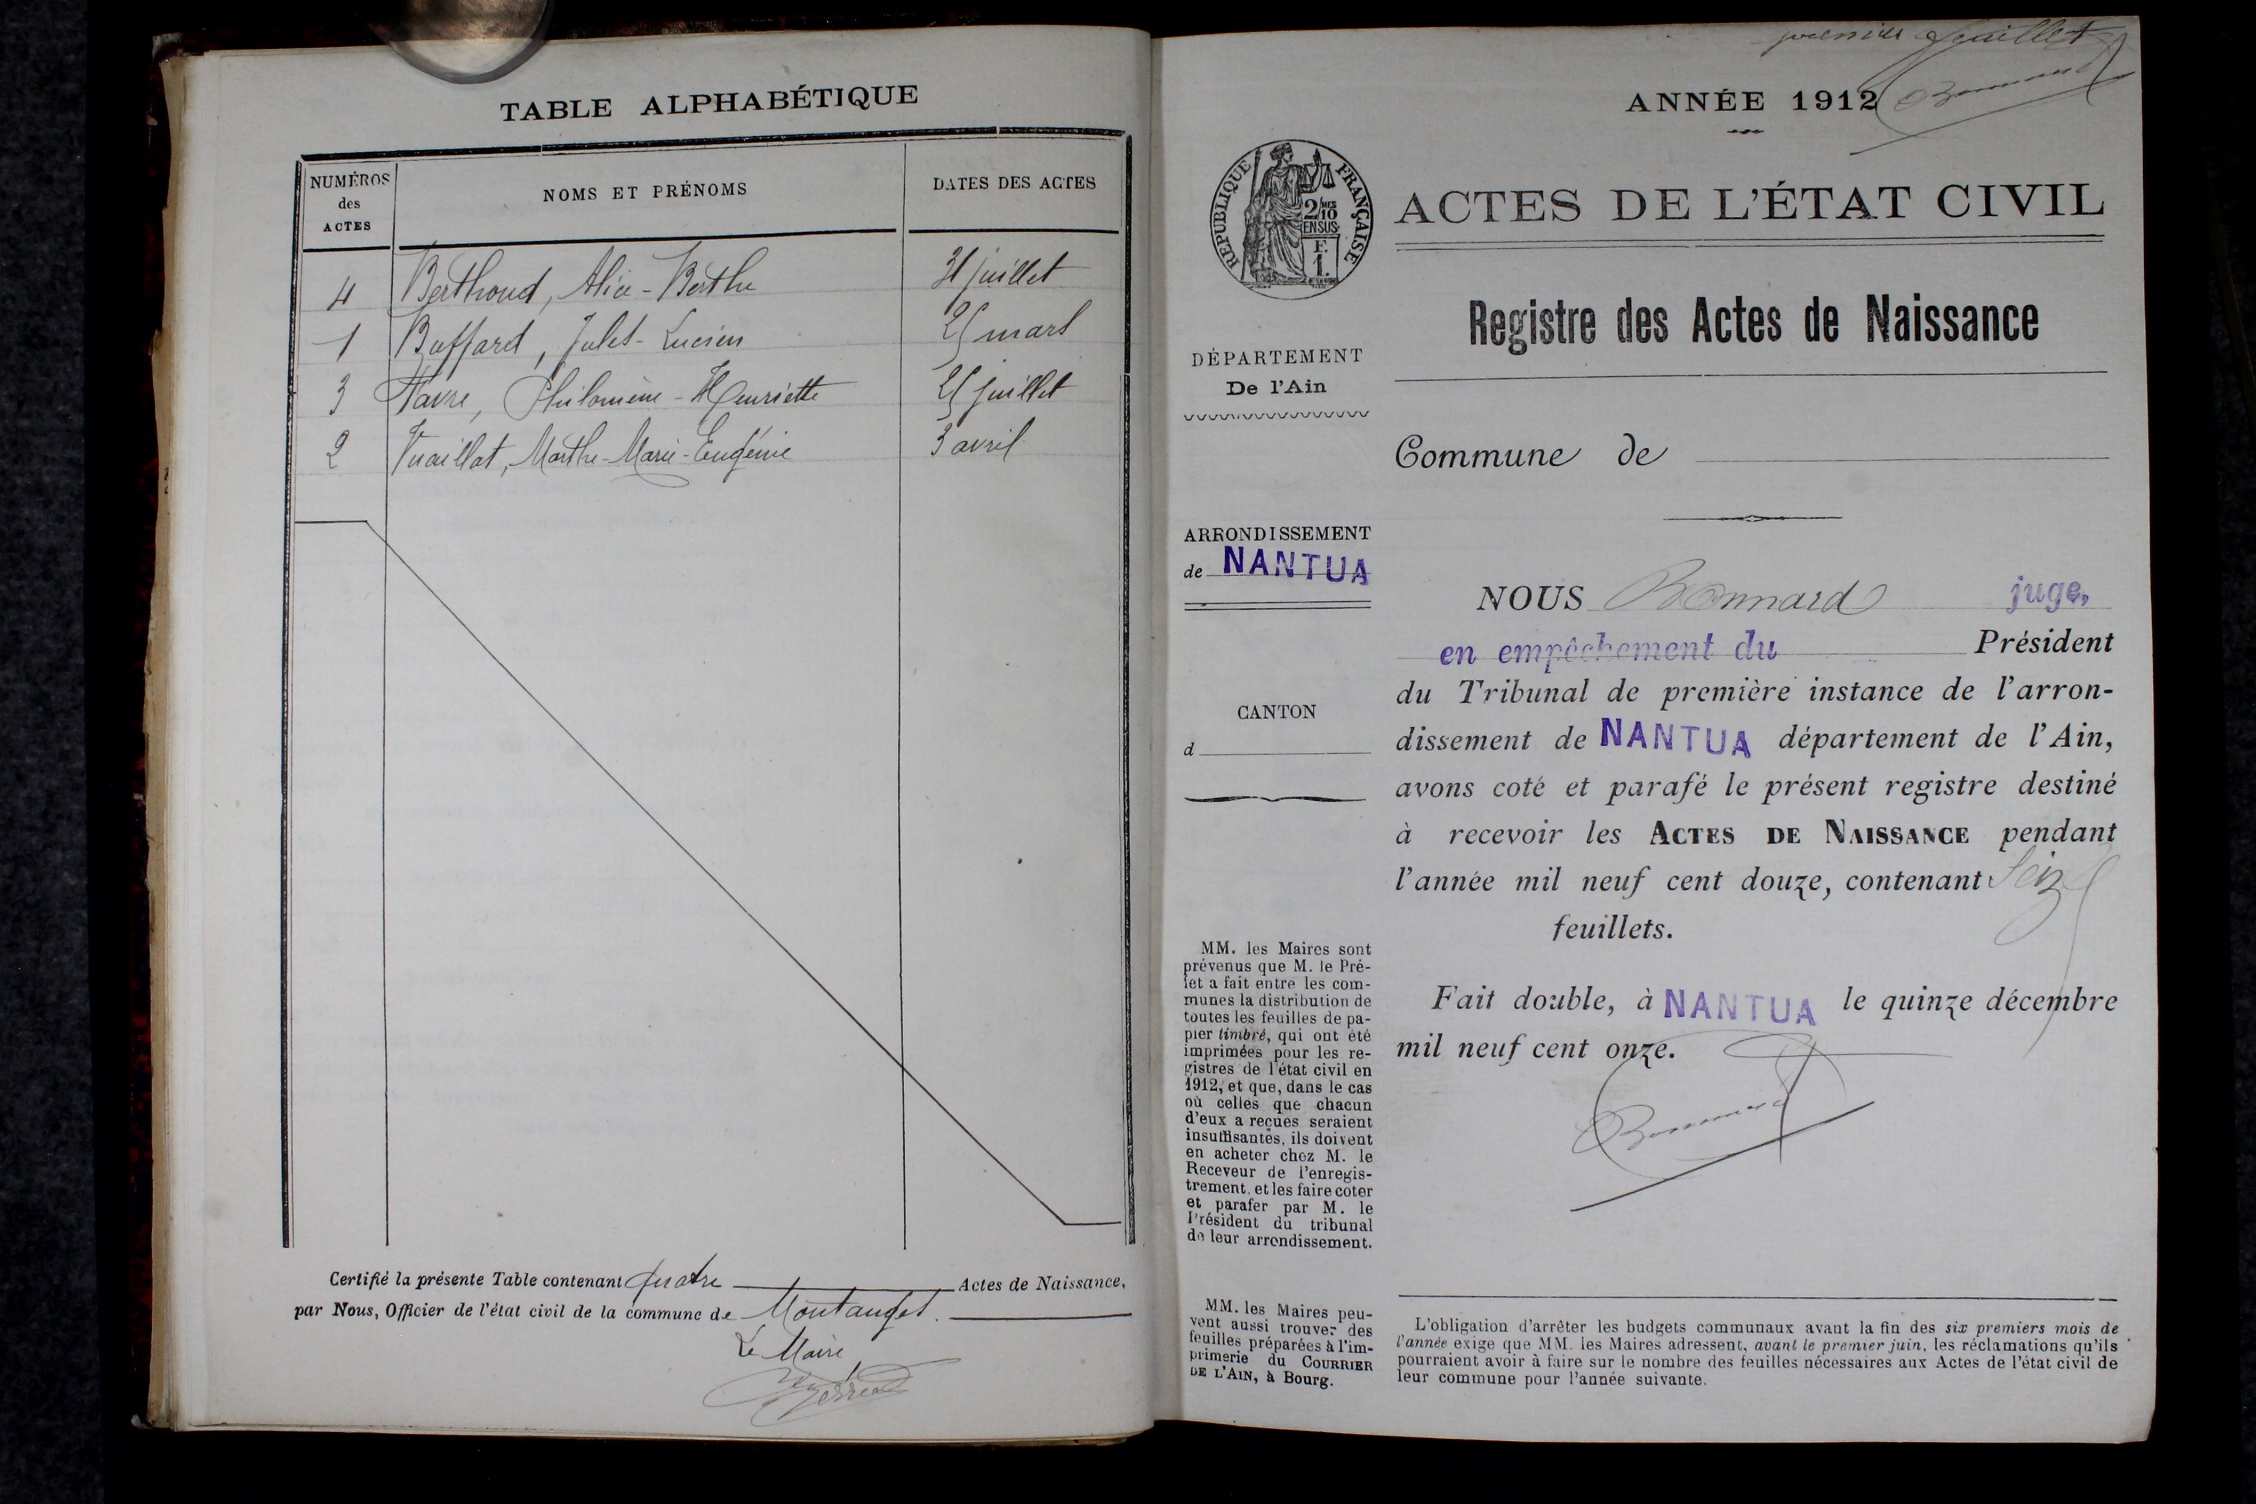 TABLE ALPHABÉTIQUE
NUMÉROS
des
ACTES
NOMS ET PRÉNOMS
DATES DES ACTES
4 Berthoud, Alice-Berthe 31 juillet
1 Buffard, Jules-Lucien 25 mars
3 Favre, Philomène-Henriette 25 juillet
2 Vuaillat, Marthe-Marie-Eugénie 3 avril
Certifié la présente Table contenant quatre Actes de Naissance,
par Nous, Officier de l'état civil de la commune de Montanges.
Le Maire
premier feuillet
Bonnard
ANNÉE 1912
RÉPUBLIQUE FRANÇAISE
2/10
EN SUS
F.
1.
ACTES DE L'ÉTAT CIVIL
Registre des Actes de Naissance
DÉPARTEMENT
De l'Ain
Commune de
ARRONDISSEMENT
de NANTUA
CANTON
d
NOUS Bonnard juge,
en empêchement du Président
du Tribunal de première instance de l'arron-
dissement de NANTUA département de l'Ain,
avons coté et parafé le présent registre destiné
à recevoir les ACTES DE NAISSANCE pendant
l'année mil neuf cent douze, contenant Seize
feuillets.
Fait double, à NANTUA le quinze décembre
mil neuf cent onze.
Bonnard
MM. les Maires sont
prévenus que M. le Pré-
fet a fait entre les com-
munes la distribution de
toutes les feuilles de pa-
pier timbré, qui ont été
imprimées pour les re-
gistres de l'état civil en
1912, et que, dans le cas
où celles que chacun
d'eux a reçues seraient
insuffisantes, ils doivent
en acheter chez M. le
Receveur de l'enregis-
trement, et les faire coter
et parafer par M. le
Président du tribunal
de leur arrondissement.
MM. les Maires peu-
vent aussi trouver des
feuilles préparées à l'im-
primerie du COURRIER
DE L'AIN, à Bourg.
L'obligation d'arrêter les budgets communaux avant la fin des six premiers mois de
l'année exige que MM. les Maires adressent, avant le premier juin, les réclamations qu'ils
pourraient avoir à faire sur le nombre des feuilles nécessaires aux Actes de l'état civil de
leur commune pour l'année suivante.